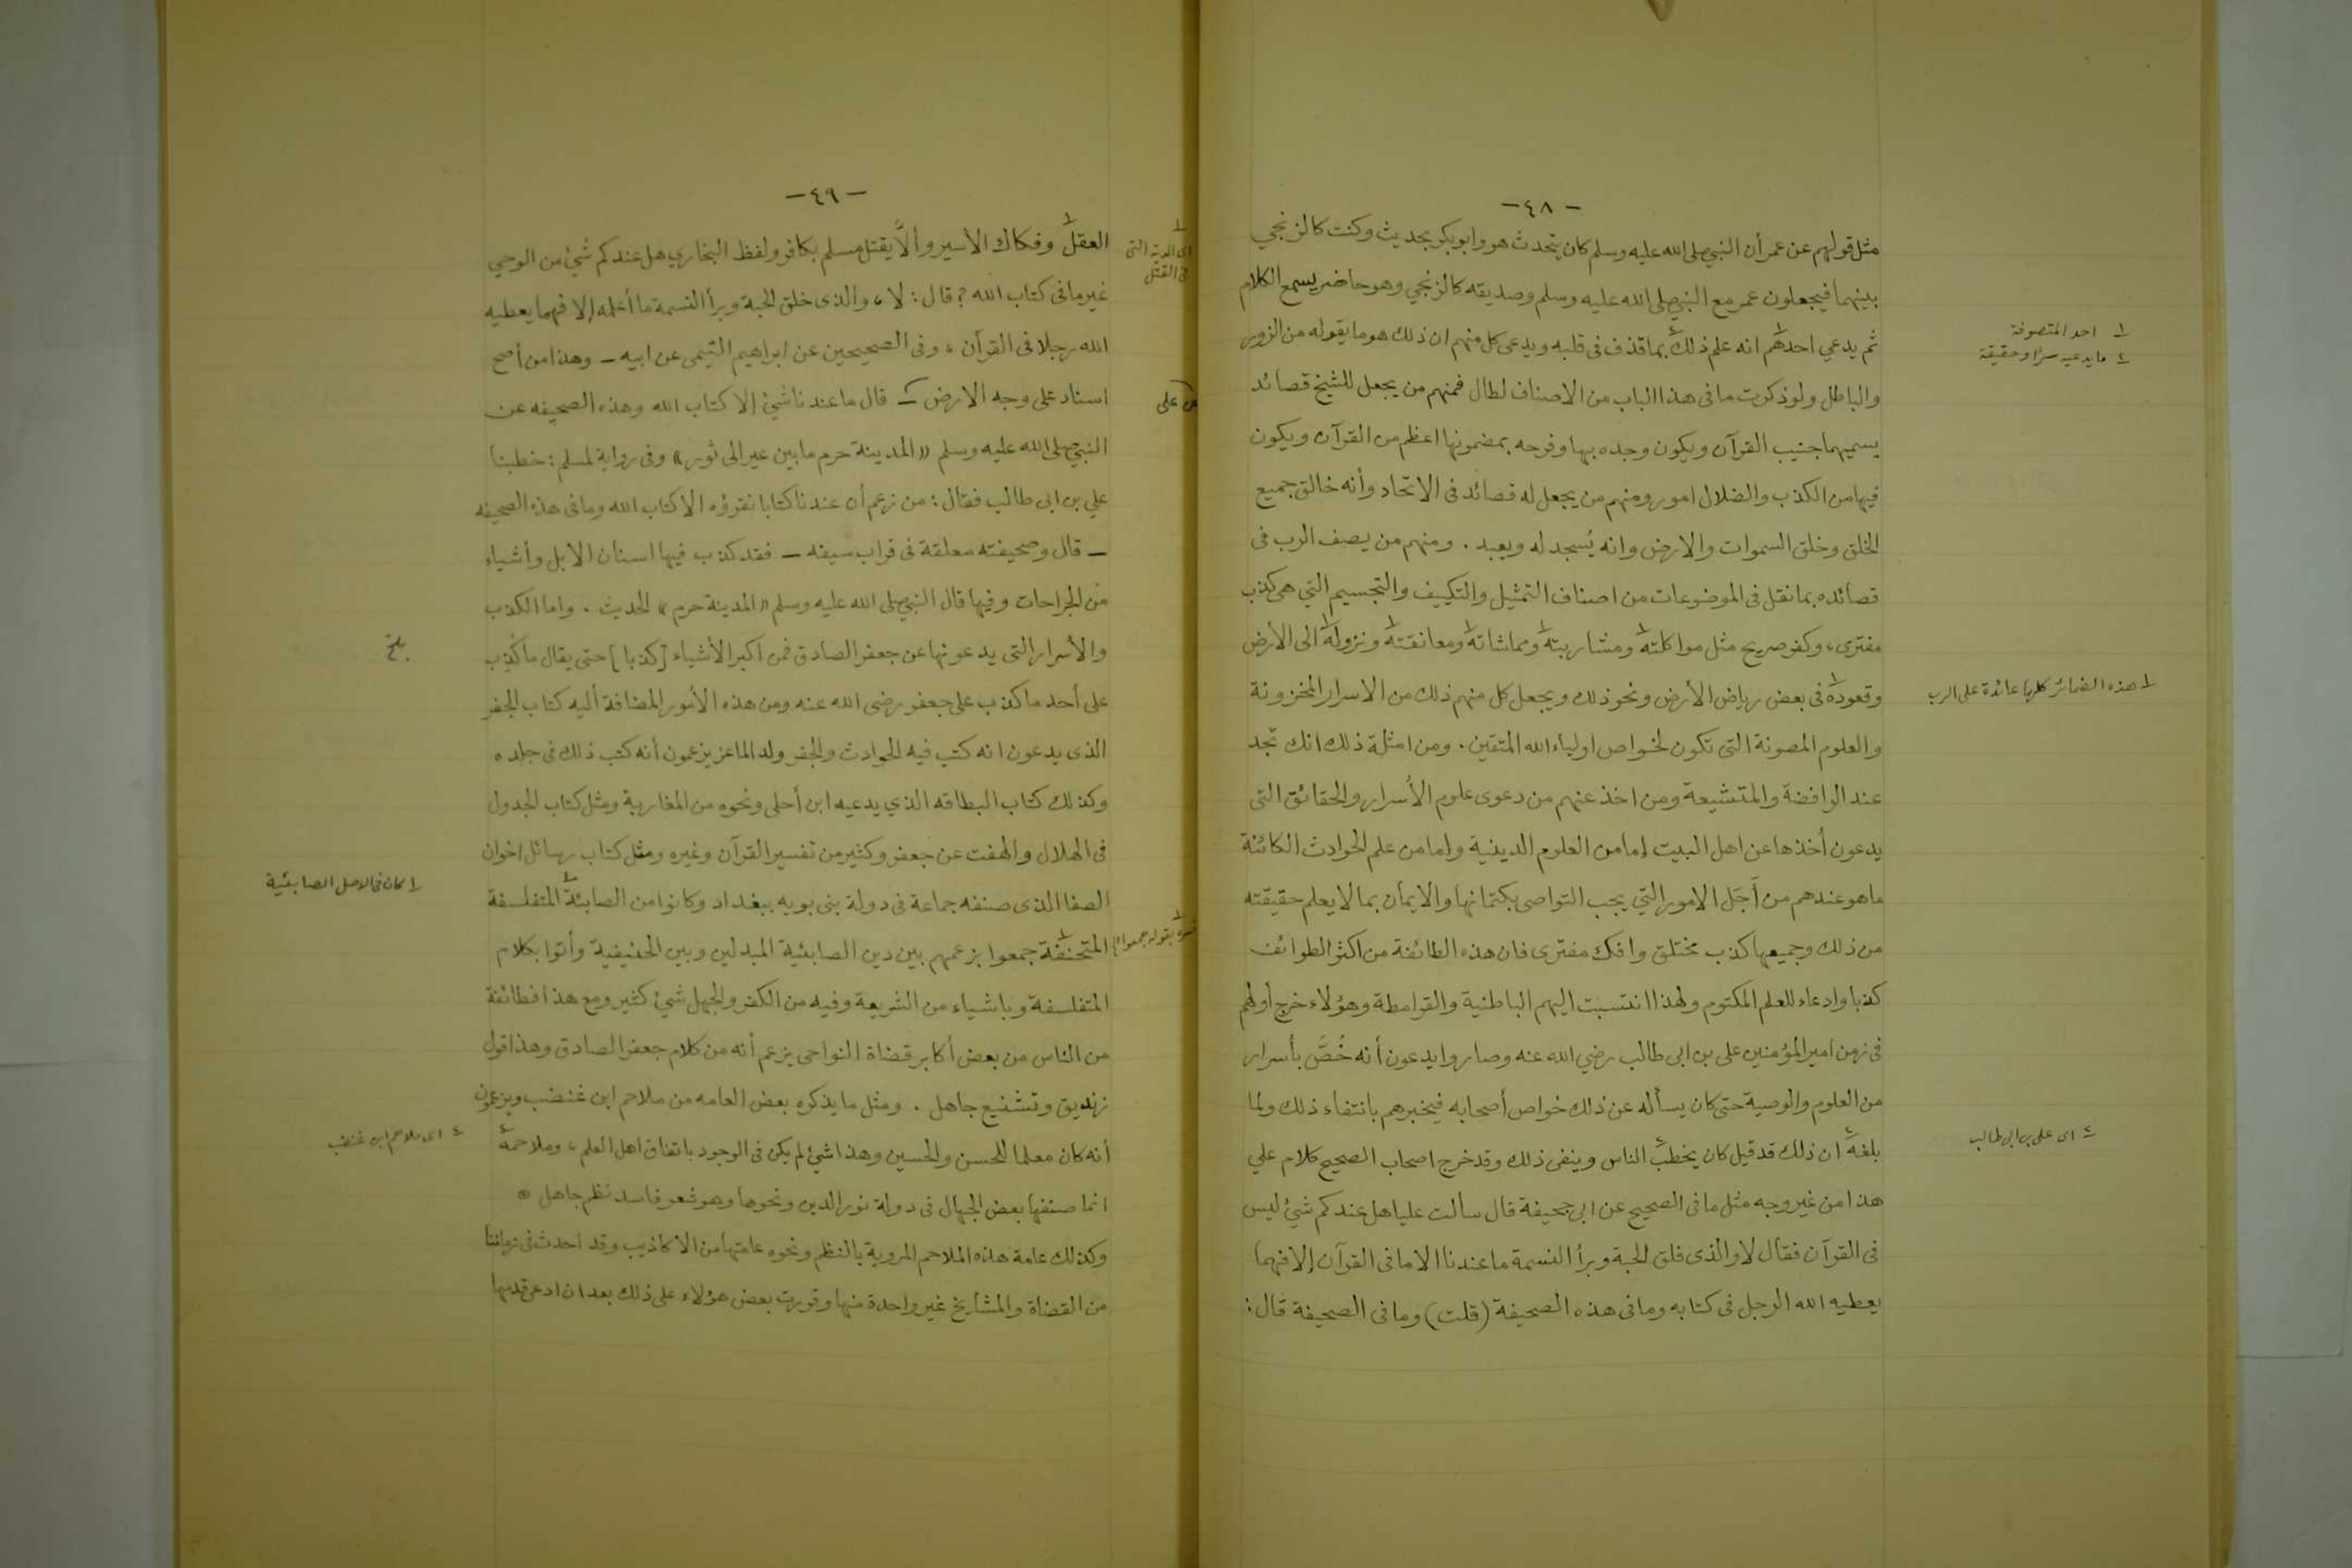 -٤٨-
مثل قولهم عن عمر أن النبي صلى الله عليه وسلم كان يتحدث هو وابو بكر بحديث وكنت كالزنجي
بينهما فيجعلون عمر مع النبي صلى الله عليه وسلم وصديقه كالزنجي وهو حاضر يسمع الكلام
ثم يدعي احدهم١ انه علم ذلك٢ بما قذف فى قلبه ويدعى كل منهم ان ذلك هو ما يقوله من الزور
١ احد المتصوفة
٢ ما يدعيه سرًا وحقيقة
والباطل ولو ذكرت ما فى هذا الباب من الاصناف لطال فمنهم من يجعل للشيخ قصائد
يسميها جنيب القرآن ويكون وجده بها وفرحه بمضمونها اعظم من القرآن ويكون
فيها من الكذب والضلال امور ومنهم من يجعل له قصائد فى الاتحاد وأنه خالق جميع
الخلق وخلق السموات والارض وانه يُسجد له ويعبد . ومنهم من يصف الرب فى
قصائده بما نقل فى الموضوعات من اصناف التمثيل والتكييف والتجسيم التي هى كذب
مفترى، وكفر صريح مثل مواكلته١ ومشاربته١ ومماشاته١ ومعانقته١ ونزوله١ الى الأرض
وقعوده١ فى بعض رياض الأرض ونحو ذلك ويجعل كل منهم ذلك من الاسرار المخزونة
١ هذه الضمائر كلها عائدة على الرب
والعلوم المصونة التى تكون لخواص اولياء الله المتقين . ومن امثلة ذلك انك تجد
عند الرافضة والمتشيعة ومن اخذ عنهم من دعوى علوم الأسرار والحقائق التى
يدعون أخذها عن اهل البيت إما من العلوم الدينية واما من علم الحوادث الكائنة
ما هو عندهم من أجَل الامور التي يجب التواصى بكتمانها والايمان بما لا يعلم حقيقته
من ذلك وجميعها كذب مختلق وافك مفترى فان هذه الطائفة من اكثر الطوائف
كذبا وادعاء للعلم المكتوم ولهذا انتسبت اليهم الباطنية والقرامطة وهؤلاء خرج أولهم
فى زمن امير المؤمنين على بن ابى طالب رضي الله عنه وصاروا يدعون أنه خُصَّ بأسرار
من العلوم والوصية حتى كان يسأله عن ذلك خواص أصحابه فيخبرهم بانتفاء ذلك ولما
بلغه٢ ان ذلك قد قيل كان يخطب٢ الناس وينفى ذلك وقد خرج اصحاب الصحيح كلام علي
٢ اى على بن ابى طالب
هذا من غير وجه مثل ما فى الصحيح عن ابى جحيفة قال سألت عليا هل عندكم شيئ ليس
فى القرآن فقال لا والذى فلق الحبة وبرأ النسمة ما عندنا الا ما فى القرآن إلا فهما
يعطيه الله الرجل فى كتابه وما فى هذه الصحيفة (قلت) وما فى الصحيفة قال:
-٤٩-
العقل١ وفكاك الأسير وألاّ يقتل مسلم بكافر ولفظ البخاري هل عندكم شئ من الوحي
١ اى الدية التى فى القتل
غير ما فى كتاب الله؟ قال: لا، والذى خلق الحبة وبرأ النسمة ما أعلمه إلا فهما يعطيه
الله رجلا فى القرآن، وفى الصحيحين عن ابراهيم التيمى عن ابيه – وهذا من أصح
اسناد على وجه الارض – قال ما عندنا شيئ إلا كتاب الله وهذه الصحيفه عن
عن على
النبي صلى الله عليه وسلم «المدينة حرم ما بين عير الى ثور» وفى رواية لمسلم: خطبنا
علي بن ابى طالب فقال: من زعم أن عندنا كتابا نقرؤه الا كتاب الله وما فى هذه الصحيفه
– قال وصحيفته معلقة فى قراب سيفه – فقد كذب فيها اسنان الابل وأشياء
من الجراحات وفيها قال النبي صلى الله عليه وسلم «المدينة حرم» الحديث . واما الكذب
والأسرار التى يدعونها عن جعفر الصادق فمن اكبر الأشياء [كذبا] حتى يقال ما كُذب
على أحد ما كذب على جعفر رضى الله عنه ومن هذه الأمور المضافة أليه كتاب الجفر
الذى يدعون انه كتب فيه الحوادث والجفر ولد الماعز يزعمون أنه كتب ذلك فى جلده
وكذلك كتاب البطاقه الذي يدعيه ابن أحلى ونحوه من المغاربة ومثل كتاب الجدول
فى الهلال والهفت عن جعفر وكثير من تفسير القرآن وغيره ومثل كتاب رسائل اخوان
الصفا الذى صنفه جماعة فى دولة بنى بويه ببغداد وكانوا من الصابئة١ المتفلسفة
١ كان فى الاصل الصابئية
المتحنفة١ جمعوا بزعمهم بين دين الصابئية المبدلين وبين الحنيفية وأتوا بكلام
المتفلسفة وباشياء من الشريعة وفيه من الكفر والجهل شيئ كثير ومع هذا فطائفة
من الناس من بعض أكابر قضاة النواحى يزعم أنه من كلام جعفر الصادق وهذا قول
زنديق وتشنيع جاهل . ومثل ما يذكره بعض العامه من ملاحم ابن غنضب ويزعمون
أنه كان معلما للحسن والحسين وهذا شيئ لم يكن فى الوجود باتفاق اهل العلم، وملاحمه٢
٢ اى ملاحم ابن غنضب
انما صنفها بعض الجهال فى دولة نور الدين ونحوها وهو شعر فاسد نظم جاهل
وكذلك عامة هذه الملاحم المروية بالنظم ونحوه عامتها من الاكاذيب وقد احدث فى زماننا
من القضاة والمشايخ غير واحدة منها وقررت بعض هؤلاء على ذلك بعد ان ادعى قدمها